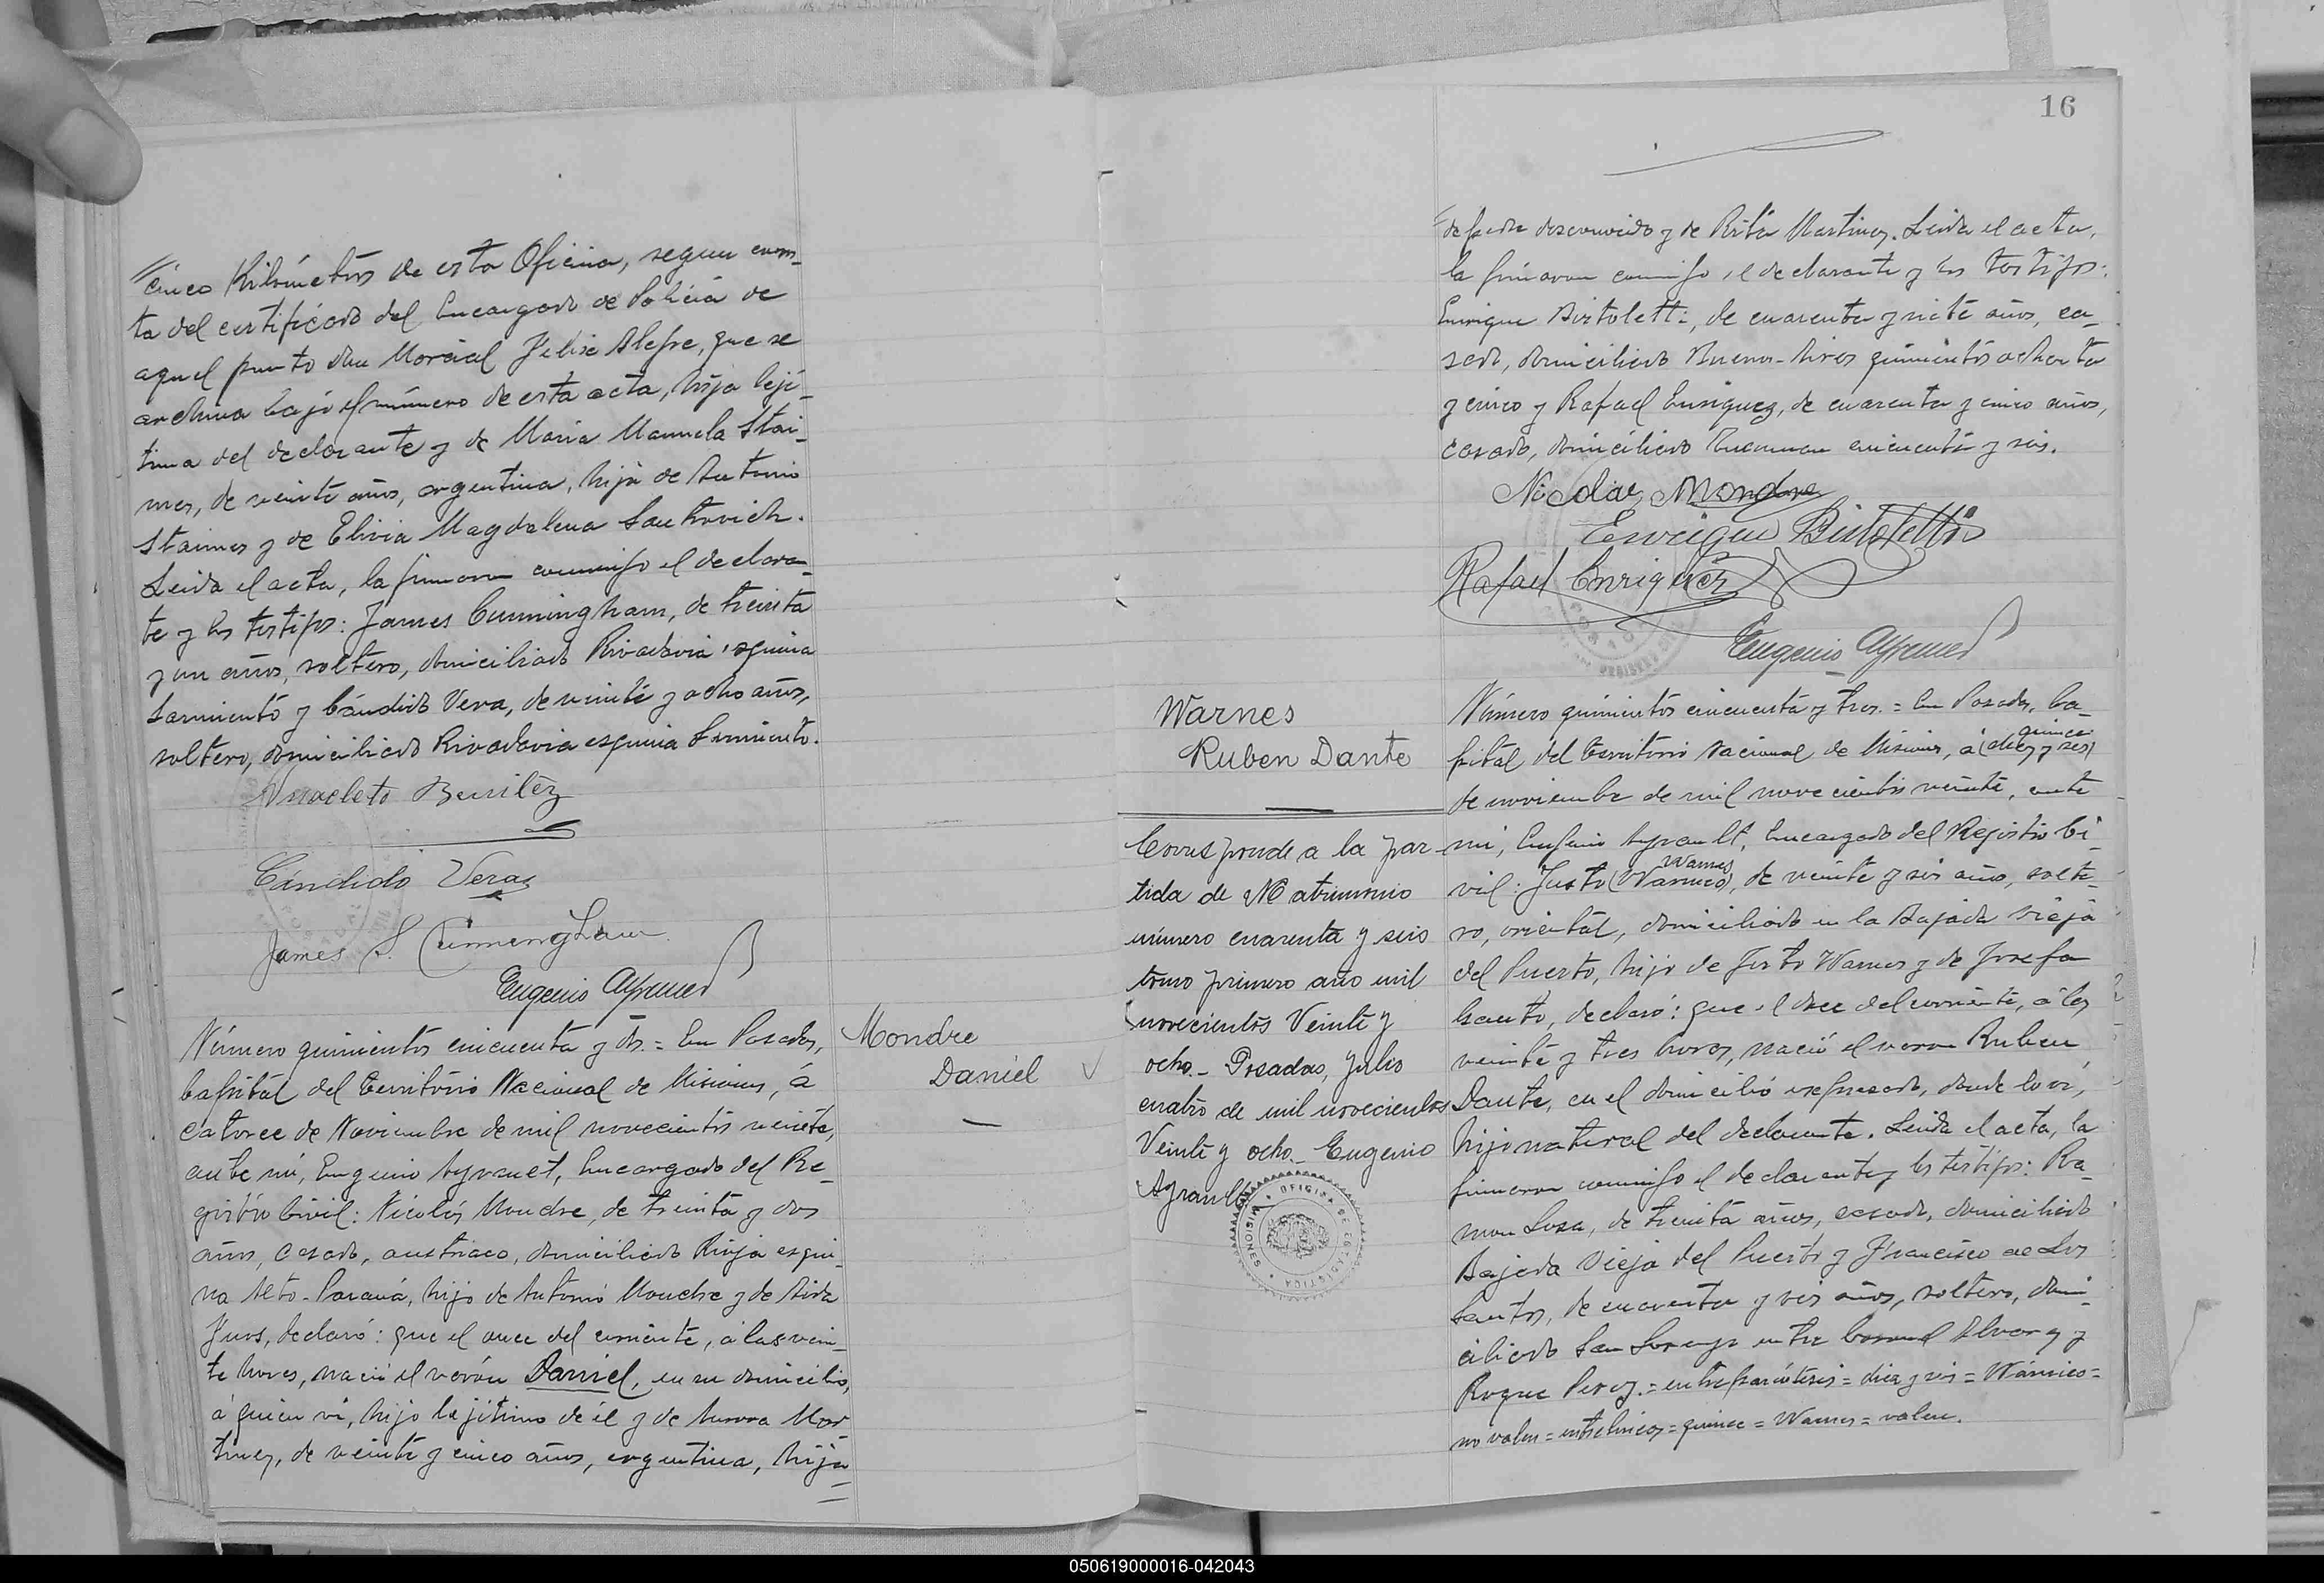 cinco Kilómetros de esta Oficina, segun cons-
ta del certificado del Encargado de Policia de
aquel punto don Marcial Felise Alegre, que se
archiva bajo el número de esta acta, hija leji-
tima del declarante y de Maria Manuela Stai-
mes, de veinte años, argentina, hija de Antonio
Staimes y de Elivia Magdalena Santrovich.
Leida el acta, la firmaron conmigo el declaran-
te y los testigos: James Cunningham, de treinta
y un años, soltero, domiciliado Rivadavia esquina
Sarmiento y Cándido Vera, de veinte y ocho años,
soltero, domiciliado Rivadavia esquina Sarmiento.
Anacleto Benitez
Cándido Vera
James S. Cunningham
Eugenio Ayrault
Mondre
Daniel
Número quinientos cincuenta y dos. = En Posadas,
Capital del Territorio Nacional de Misiones, á
catorce de Noviembre de mil novecientos veinte,
ante mi, Eugenio Ayrault, Encargado del Re-
gistro Civil: Nicolás Mondre, de treinta y dos
años, casado, austriaco, domiciliado Rioja esqui-
na Alto-Paraná, hijo de Antonio Mondre y de Aida
Juos, declaró: que el once del corriente, á las vein-
te horas, nació el varón Daniel, en su domicilio,
á quien vi, hijo lejitimo de él y de Aurora Mar-
tinez, de veinte y cinco años, argentina, hija
16
de padre desconocido y de Rita Martinez. Leida el acta,
la firmaron conmigo, el declarante y los testigos:
Enrique Bertoletti, de cuarenta y siete años, ca-
sado, domiciliado Buenos-Aires quinientos ochenta
y cinco y Rafael Enriquez, de cuarenta y cinco años,
casado, domiciliado Tucuman cincuenta y seis.
Nicolas Mondre
Enrique Bertoletti
Rafael Enriquez
Eugenio Ayrault
Warnes
Ruben Dante
Corresponde a la par
tida de Matrimonio
número cuarenta y seis
tomo primero año mil
novecientos Veinte y
ocho.- Posadas, Julio
cuatro de mil novecientos
Veinte y ocho.- Eugenio
Ayrault
OFICINA DE ESTADISTICA * MISIONES *
Número quinientos cincuenta y tres. = En Posadas, Ca-
quince
pital del Territorio Nacional de Misiones, á (diez y seis)
de noviembre de mil novecientos veinte, ante
mi, Eugenio Ayrault, Encargado del Registro Ci-
Warnes
vil: Justo (Warnico), de veinte y seis años, solte-
ro, oriental, domiciliado en la Bajada Vieja
del Puerto, hijo de Justo Warnes y de Josefa
declaró: que el doce del corriente, á las
veinte y tres horas, nació el varon Ruben
Dante, en el domicilio expresado, donde lo vi,
hijo natural del declarante. Leida el acta, la
firmaron conmigo el declarante y los testigos: Ra-
mon Sosa, de treinta años, casado, domiciliado
Bajada Vieja del Puerto y Francisco de los
Santos, de cuarenta y seis años, soltero, domi-
ciliado San Lorenzo entre Coronel Alvarez y
Roque Perez. = entre paréntesis = diez y seis = Warnico =
no valen = entrelineas = quince = Warnes = valen.
050619000016-042043